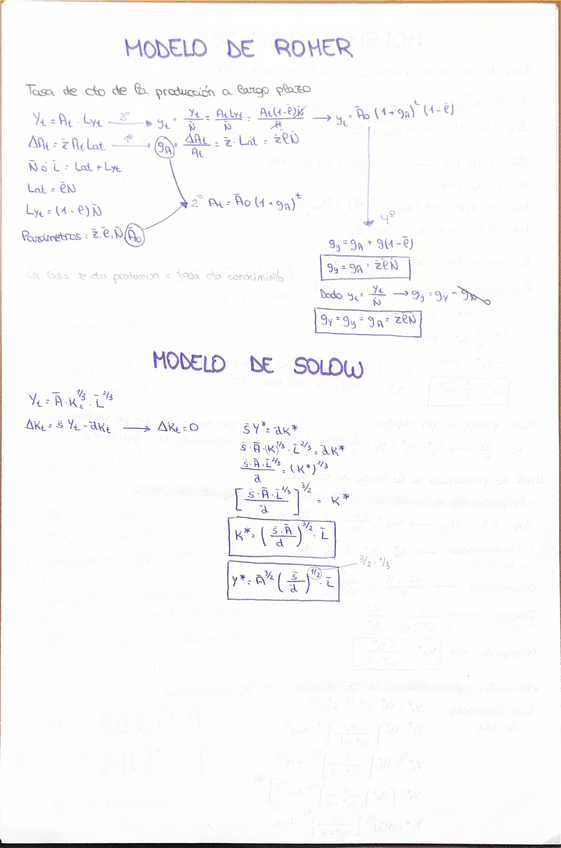 MODELO DE ROMER
Tasa de cto de la producción a largo plazo
Yt = At · Lyt —3º→ yt = Yt/N̄ = At Lyt/N̄ = At(1-ℓ̄)N̄/N̄ → yt = Ā0 (1+gA)^t (1-ℓ̄)
ΔAt = z̄ At Lat —1º→ gA = ΔAt/At = z̄ · Lat = z̄ℓ̄N̄
N̄ o L̄ = Lat + Lyt
Lat = ℓ̄N̄
2º At = Ā0 (1+gA)^t
Lyt = (1-ℓ̄)N̄
4º
Parámetros = z̄, ℓ̄, N̄, Ā0
gy = gA + g(1-ℓ̄)
gy = gA = z̄ℓ̄N̄
La tasa de cto produccion = tasa cto conocimiento
Dado yt = Yt/N̄ → gy = gY - gN
gY = gy = gA = z̄ℓ̄N̄
MODELO DE SOLOW
Yt = Ā · Kt^1/3 · L̄^2/3
ΔKt = s̄ Yt - d̄Kt → ΔKt = 0
s̄ Y* = d̄K*
s̄ · Ā · (K)^1/3 · L̄^2/3 = d̄K*
s̄ · Ā · L̄^2/3 / d̄ = (K*)^2/3
[s̄ · Ā · L̄^2/3 / d̄]^3/2 = K*
K* = (s̄ · Ā / d̄)^3/2 · L̄
3/2 · 1/3
Y* = Ā^3/2 (s̄/d̄)^1/2 · L̄